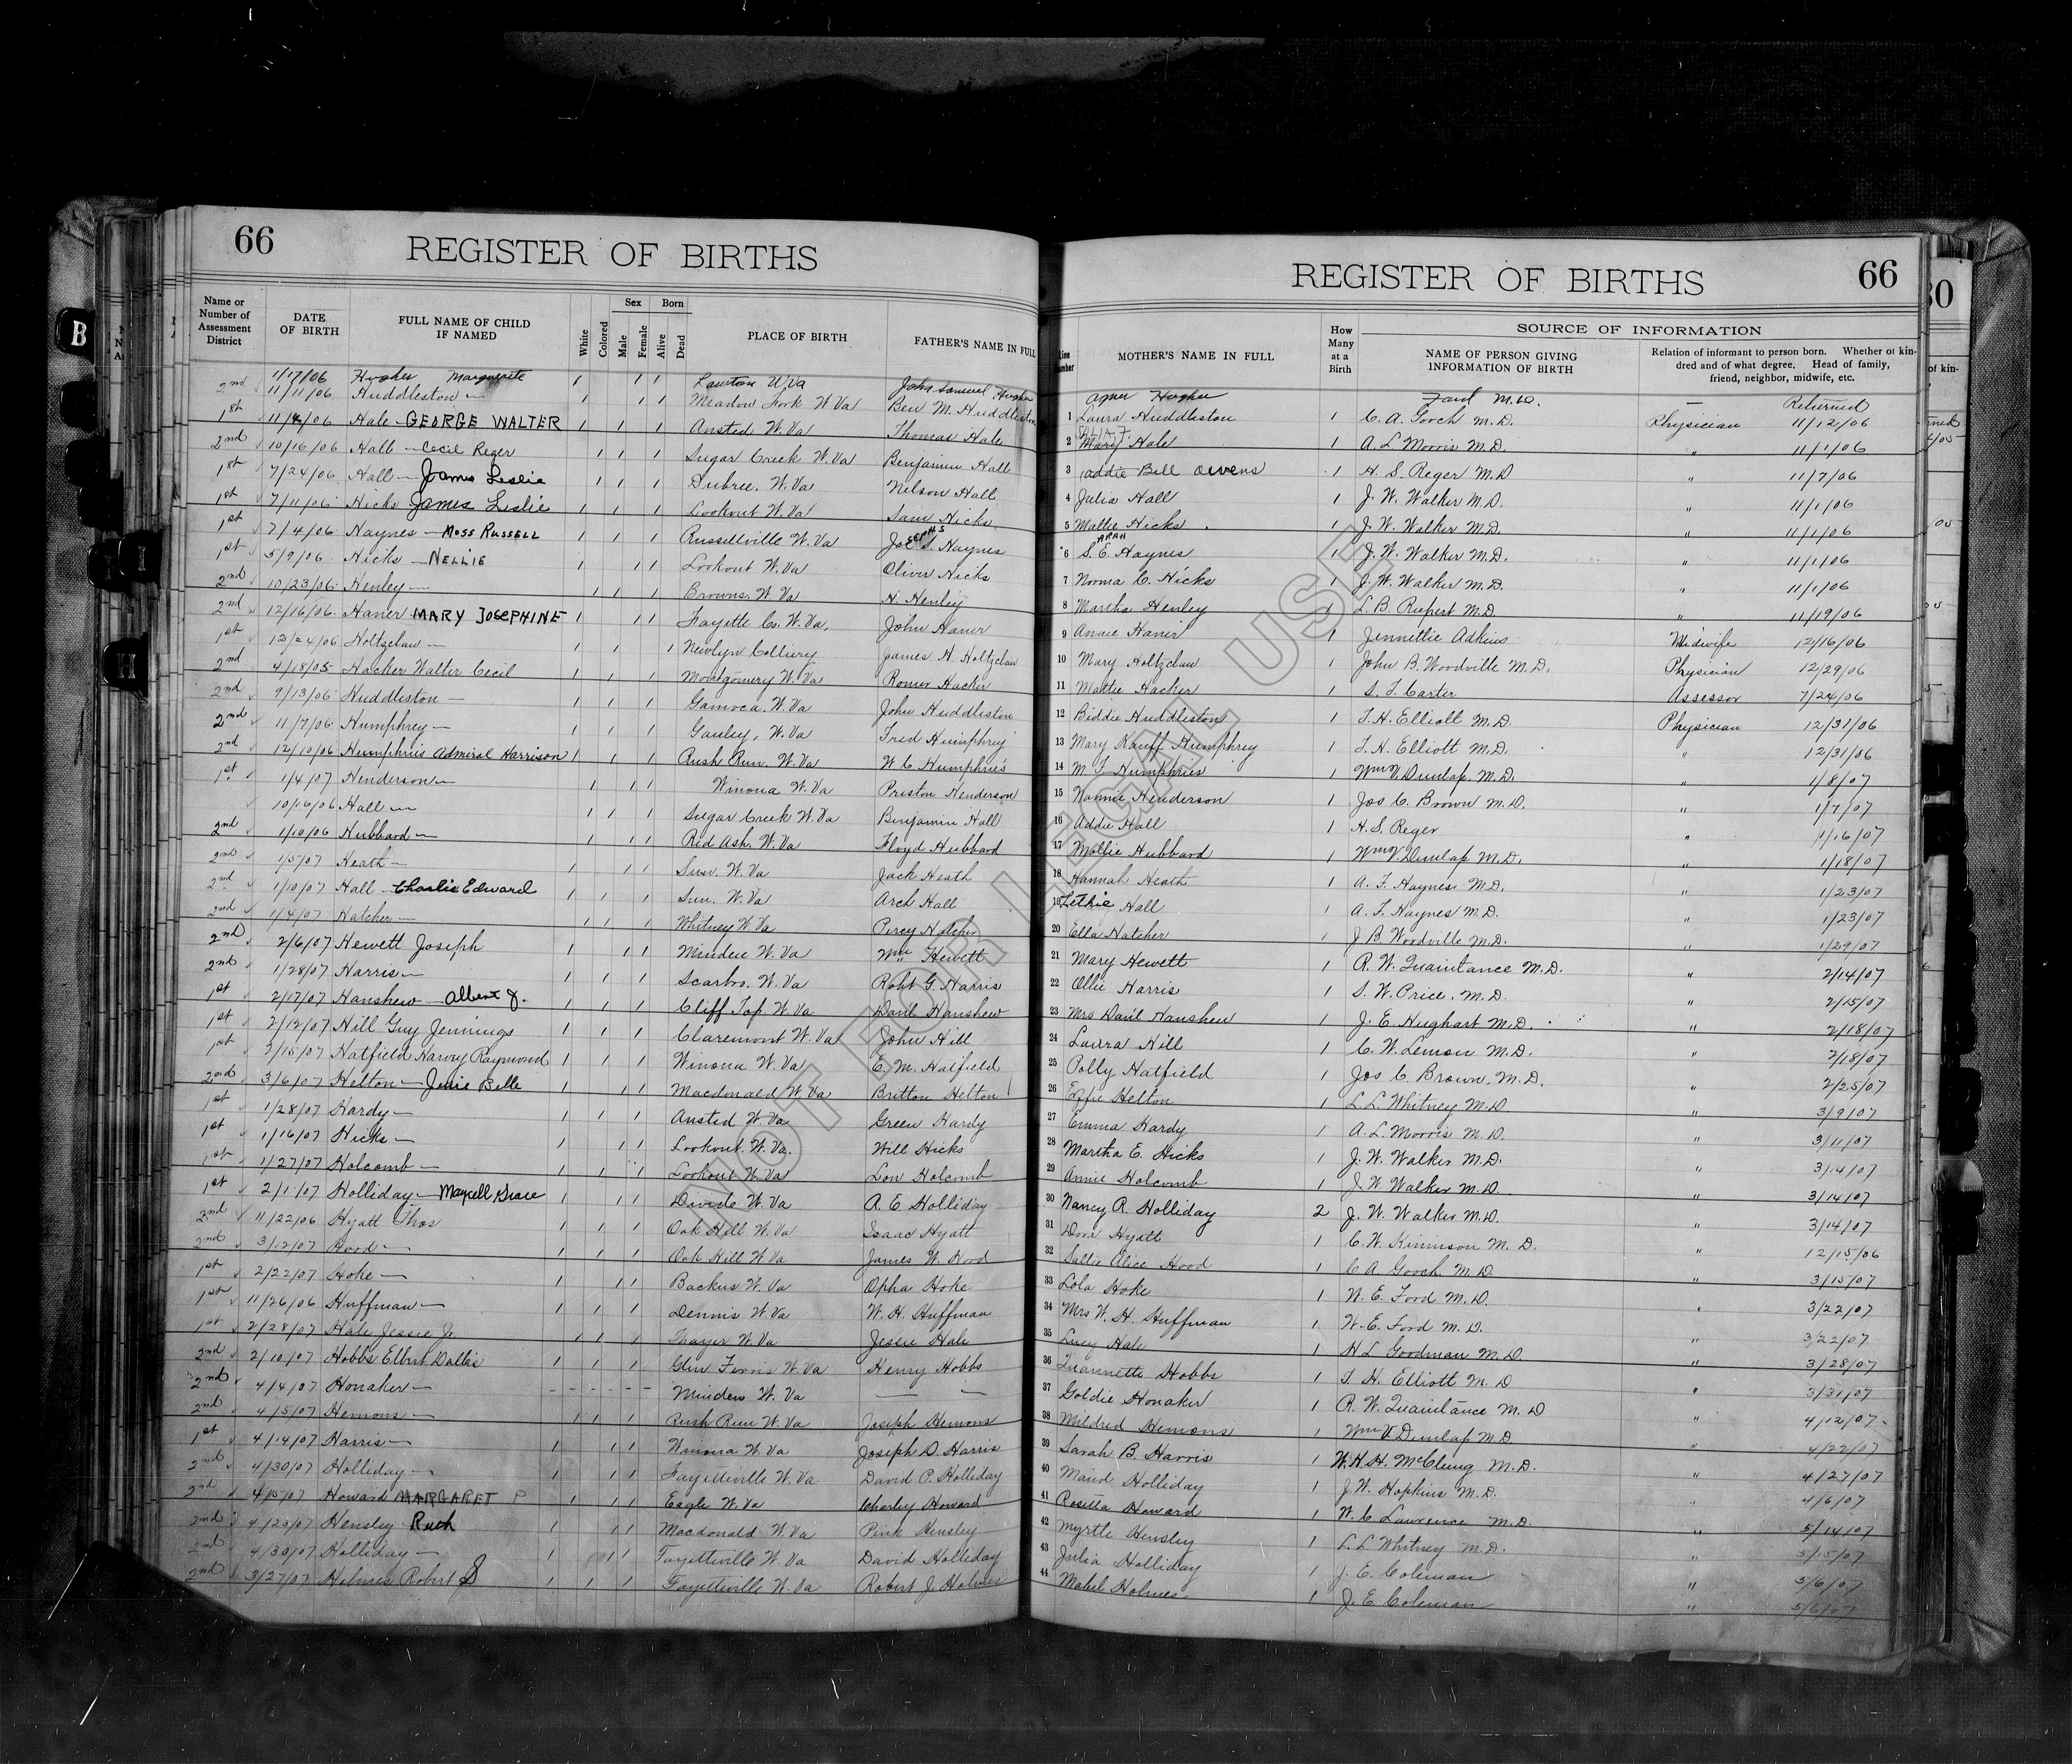 66
REGISTER OF BIRTHS
Name or Number of Assessment District | DATE OF BIRTH | FULL NAME OF CHILD IF NAMED | White | Colored | Sex Male | Female | Born Alive | Dead | PLACE OF BIRTH | FATHER'S NAME IN FULL
66
REGISTER OF BIRTHS
Line Number | MOTHER'S NAME IN FULL | How Many at a Birth | SOURCE OF INFORMATION | NAME OF PERSON GIVING INFORMATION OF BIRTH | Relation of informant to person born. Whether of kindred and of what degree. Head of family, friend, neighbor, midwife, etc.
11/17/06 Hughes Marguerite 1 1 1 Lawton W Va John Samuel Hughes Agnes Hughes Ford M.D. — Returned
2nd 11/11/06 Huddleston — 1 1 Meadow Fork W Va Ben M. Huddleston 1 Laura Huddleston 1 C. A. Gooch M.D. Physician 11/12/06
1st 11/4/06 Hale - GEORGE WALTER 1 1 1 Ansted W. Va Thomas Hale 2 Mary Hale 1 A. L. Morris M.D. " 11/1/06
2nd 10/16/06 Hall - Cecil Reger 1 1 1 Sugar Creek W. Va Benjamin Hall 3 Addie Bell Owens 1 H. S. Reger M.D " 11/7/06
1st 7/24/06 Hall - James Leslie 1 1 1 Dubree, W. Va Nelson Hall 4 Julia Hall 1 J. W. Walker M.D. " 11/1/06
1st 7/11/06 Hicks James Leslie 1 1 1 Lookout W. Va Sam Hicks 5 Mattie Hicks 1 J. W. Walker M.D. " 11/1/06
1st 7/4/06 Haynes - MOSS RUSSELL 1 1 1 Russellville W. Va JoSEPH S. Haynes 6 S. ARAH E. Haynes 1 J. W. Walker M.D. " 11/1/06
1st 5/9/06 Hicks - NELLIE 1 1 1 Lookout W. Va Oliver Hicks 7 Norma C. Hicks 1 J. W. Walker M.D. " 11/1/06
2nd 10/23/06 Henley — 1 1 1 Browns, W. Va H Henley 8 Martha Henley 1 L. B. Rupert M.D. " 11/19/06
2nd 12/16/06 Haner MARY JOSEPHINE 1 1 1 Fayette Co. W. Va. John Haner 9 Annie Haner 1 Jennettie Adkins Midwife 12/16/06
1st 12/24/06 Holtzclaw — 1 1 1 Newlyn Colliery James H. Holtzclaw 10 Mary Holtzclaw 1 John B. Woodville M.D. Physician 12/29/06
2nd 4/18/05 Hacker Walter Cecil 1 1 1 Montgomery W. Va Romer Hacker 11 Mattie Hacker 1 S. T. Carter Assessor 7/24/06
2nd 9/13/06 Huddleston — 1 1 1 Gamoca, W. Va John Huddleston 12 Biddie Huddleston 1 T. H. Elliott M.D. Physician 12/31/06
2nd 11/7/06 Humphrey — 1 1 1 Gauley, W. Va Fred Humphrey 13 Mary Kauff Humphrey 1 T. H. Elliott M.D. " 12/31/06
2nd 12/10/06 Humphries Admiral Harrison 1 1 1 Rush Run, W. Va W. C. Humphries 14 M. T. Humphries 1 Wm V. Dunlap, M.D. " 1/8/07
1st 1/4/07 Henderson — 1 1 1 Winona W. Va Preston Henderson 15 Nannie Henderson 1 Jos C. Brown M.D. " 1/7/07
10/16/06 Hall — 1 1 1 Sugar Creek W. Va Benjamin Hall 16 Addie Hall 1 H. S. Reger " 1/16/07
2nd 1/10/06 Hubbard — 1 1 1 Red Ash, W. Va Floyd Hubbard 17 Mollie Hubbard 1 Wm V. Dunlap M.D. " 1/18/07
2nd 1/5/07 Heath — 1 1 1 Sun, W. Va Jack Heath 18 Hannah Heath 1 A. F. Haynes M.D. " 1/23/07
2nd 1/10/07 Hall - Charlie Edward 1 1 1 Sun, W. Va Arch Hall 19 Lethie Hall 1 A. F. Haynes M.D. " 1/23/07
2nd 1/4/07 Hatcher — 1 1 1 Whitney W. Va Percy Hatcher 20 Ella Hatcher 1 J B. Woodville M.D. " 1/29/07
2nd 2/6/07 Hewett Joseph 1 1 1 Minden W. Va Wm Hewett 21 Mary Hewett 1 R. W. Quaintance M.D. " 2/14/07
2nd 1/28/07 Harris — 1 1 1 Scarbro, W. Va Robt G. Harris 22 Ollie Harris 1 S. W. Price, M.D. " 2/15/07
1st 2/17/07 Hanshew - Albert J. 1 1 1 Cliff Top W. Va Danl Hanshew 23 Mrs Danl Hanshew 1 J. E. Hughart M.D. " 2/18/07
1st 2/12/07 Hill Guy Jennings 1 1 1 Claremont W. Va John Hill 24 Laura Hill 1 C. W. Lemon M.D. " 2/18/07
1st 2/15/07 Hatfield Harvey Raymond 1 1 1 Winona W. Va E. M. Hatfield 25 Polly Hatfield 1 Jos C. Brown, M.D. " 2/25/07
2nd 3/6/07 Helton - Jenie Belle 1 1 1 Macdonald W. Va Britton Helton 26 Effie Helton 1 L. L. Whitney M.D " 3/9/07
1st 1/28/07 Hardy — 1 1 1 Ansted W. Va Green Hardy 27 Emma Hardy 1 A. L. Morris M.D. " 3/11/07
1st 1/16/07 Hicks — 1 1 1 Lookout, W. Va. Will Hicks 28 Martha E. Hicks 1 J. W. Walker M.D. " 3/14/07
1st 1/27/07 Holcomb — 1 1 1 Lookout W. Va Low Holcomb 29 Annie Holcomb 1 J. W. Walker M.D. " 3/14/07
1st 2/1/07 Holliday - Maycell Grace 1 1 1 Divide W. Va A. E. Holliday 30 Nancy R. Holliday 2 J. W. Walker M.D. " 3/14/07
2nd 11/22/06 Hyatt Thos 1 1 1 Oak Hill W. Va Isaac Hyatt 31 Dora Hyatt 1 C. W. Kininson M.D. " 12/15/06
2nd 3/12/07 Hood — 1 1 1 Oak Hill W. Va James W. Hood 32 Sallie Alice Hood 1 C A. Gooch M.D. " 3/15/07
1st 2/22/07 Hoke — 1 1 1 Backus W. Va Opha Hoke 33 Lola Hoke 1 W. E. Ford M.D. " 3/22/07
1st 11/26/06 Huffman — 1 1 1 Dennis W. Va W. H. Huffman 34 Mrs W. H. Huffman 1 W. E. Ford M.D. " 3/22/07
1st 2/28/07 Hale Jessie Jr 1 1 1 Thayer W. Va Jessie Hale 35 Lucy Hale 1 H L. Goodman M.D. " 3/28/07
2nd 2/10/07 Hobbs Elbert Dallas 1 1 1 Glen Ferris W. Va Henry Hobbs 36 Quannette Hobbs 1 T. H. Elliott M.D " 3/31/07
2nd 4/4/07 Honaker — - - - - - - Minden W. Va — — 37 Goldie Honaker 1 R. W. Quaintance M.D " 4/12/07
2nd 4/5/07 Hemons — 1 1 1 Rush Run W. Va Joseph Hemons 38 Mildred Hemons 1 Wm V Dunlap M.D " 4/22/07
1st 4/14/07 Harris — 1 1 1 Winona W. Va Joseph D. Harris 39 Sarah B. Harris 1 W. H. H. McClung M.D. " 4/27/07
2nd 4/30/07 Holliday — 1 1 1 Fayetteville W. Va David P. Holliday 40 Maud Holliday 1 J. W. Hopkins M.D. " 4/6/07
2nd 4/5/07 Howard MARGARET P 1 1 1 Eagle W. Va Charley Howard 41 Rosetta Howard 1 W. C Lawrence M.D. " 5/14/07
2nd 4/23/07 Hensley Ruth 1 1 1 Macdonald W. Va Pink Hensley 42 Myrtle Hensley 1 L L Whitney M.D. " 5/15/07
2nd 4/30/07 Holliday — 1 1 1 Fayetteville W. Va David Holliday 43 Julia Holliday 1 J. E. Coleman " 5/6/07
2nd 3/27/07 Holmes Robert J 1 1 1 Fayetteville W. Va Robert J. Holmes 44 Mabel Holmes 1 J. E. Coleman " 5/6/07
NOT FOR LEGAL USE
B
I
H